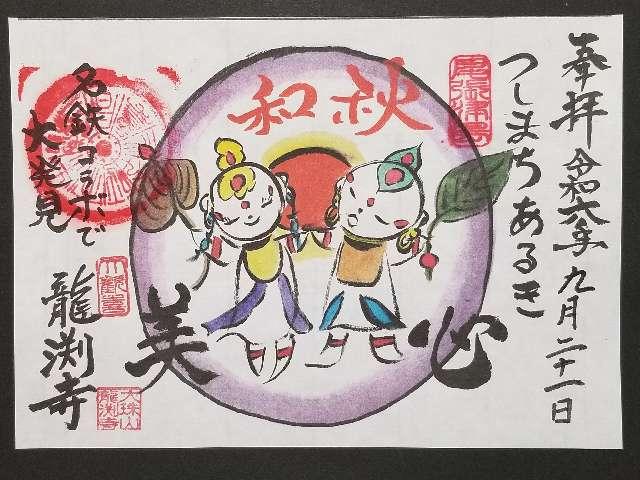 奉拝 令和六年 九月二十一日
つしまちあるき
秋和
美心
名鉄コラボで
大発見
龍渕寺
大珠山
龍渕寺